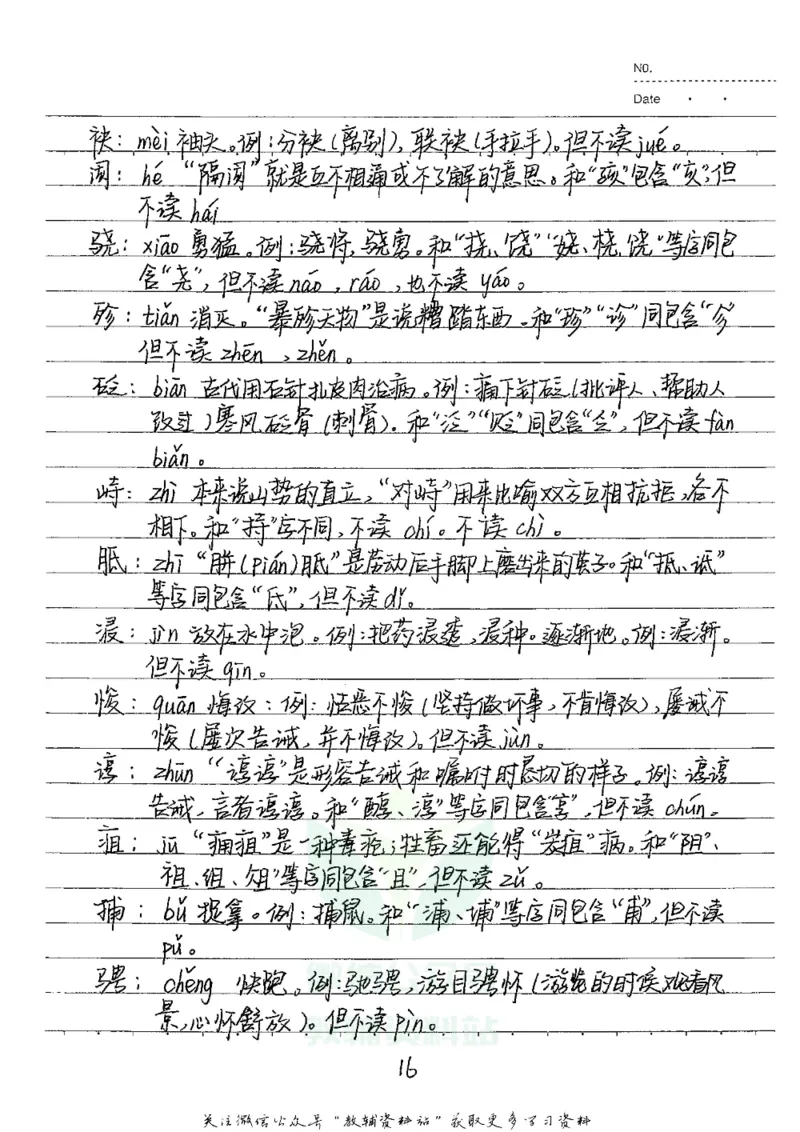 No.
Date
袂：mèi 袖头。例：分袂(离别)，联袂(手拉手)。但不读jué。
阂：hé “隔阂”就是互不相通或不了解的意思。和“孩”包含“亥”，但
不读hái
骁：xiāo 勇猛。例：骁将，骁勇。和“挠、饶”“娆、桡、饶”等字同包
含“尧”，但不读náo，ráo，也不读yáo。
殄：tiǎn 消灭。“暴殄天物”是说糟蹋东西。和“珍”“诊”同包含“㐱”
但不读zhēn，zhěn。
砭：biān 古代用石针扎皮肉治病。例：痛下针砭(批评人、帮助人
改过)寒风砭骨(刺骨)。和“泛”“贬”同包含“乏”，但不读fàn
biǎn。
峙：zhì 本来说山势的直立，“对峙”用来比喻双方互相抗拒，各不
相下。和“持”字不同，不读chí。不读chì。
胝：zhī “胼(pián)胝”是劳动后手脚上磨出来的茧子。和“抵、诋”
等字同包含“氐”，但不读dǐ。
浸：jìn 放在水中泡。例：把药浸透，浸种。逐渐地。例：浸渐。
但不读qīn。
悛：quān 悔改：例：怙恶不悛(坚持做坏事，不肯悔改)，屡诫不
悛(屡次告诫，并不悔改)。但不读jùn。
谆：zhūn “谆谆”是形容告诫和嘱咐时恳切的样子。例：谆谆
告诫，言者谆谆。和“醇、淳”等字同包含“享”，但不读chún。
疽：jū “痈疽”是一种毒疮；牲畜还能得“炭疽”病。和“阻、
祖、组、俎”等字同包含“且”，但不读zǔ。
捕：bǔ 捉拿。例：捕鼠。和“浦、埔”等字同包含“甫”，但不读
pǔ。
骋：chěng 快跑。例：驰骋，游目骋怀(游览的时候观看风
景，心怀舒放)。但不读pìn。
16
关注微信公众号“教辅资料站”获取更多学习资料